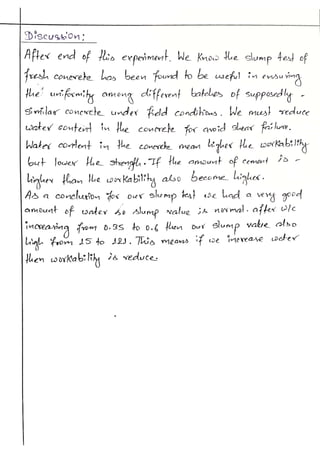 Discussion:
After end of this experiment. We Know the slump test of
fresh concrete has been found to be useful in ensuring
the uniformity among different batches of supposedly -
Similar concrete under field conditions. We must reduce
water content in the concrete for avoid shear failure.
Water content in the concrete mean higher the workability
but lower the strength. If the amount of cement is -
higher than the workability also become higher.
As a conclusion for our slump test we had a very good
amount of water so slump value is normal. after w/c
increasing from 0.35 to 0.6 then our slump value also
high from 15 to 121. This means if we increase water
then workability is reduce.